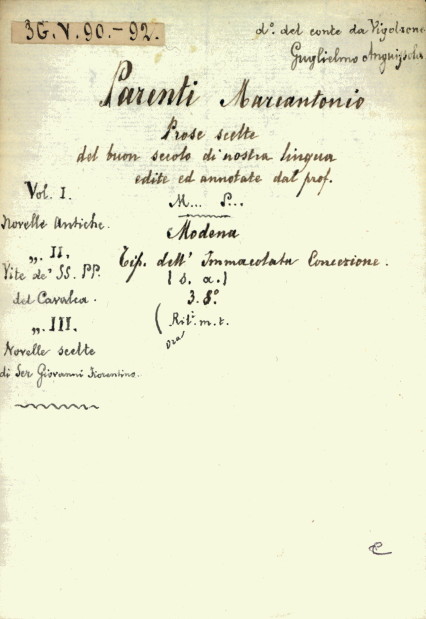 3G.V.90.-92.
d.º del conte da Vigolzone
Guglielmo Anguissola
Parenti Marcantonio
Prose scelte
del buon secolo di nostra lingua
edite ed annotate dal prof.
M... P...
Modena
Tip. dell' Immacolata Concezione.
(s. a.)
3. 8.º
(Ril. m. t.
Vol. I.
Novelle Antiche.
„. II.
Vite de' SS. PP.
del Cavalca.
„. III.
Novelle scelte
di Ser Giovanni Fiorentino.